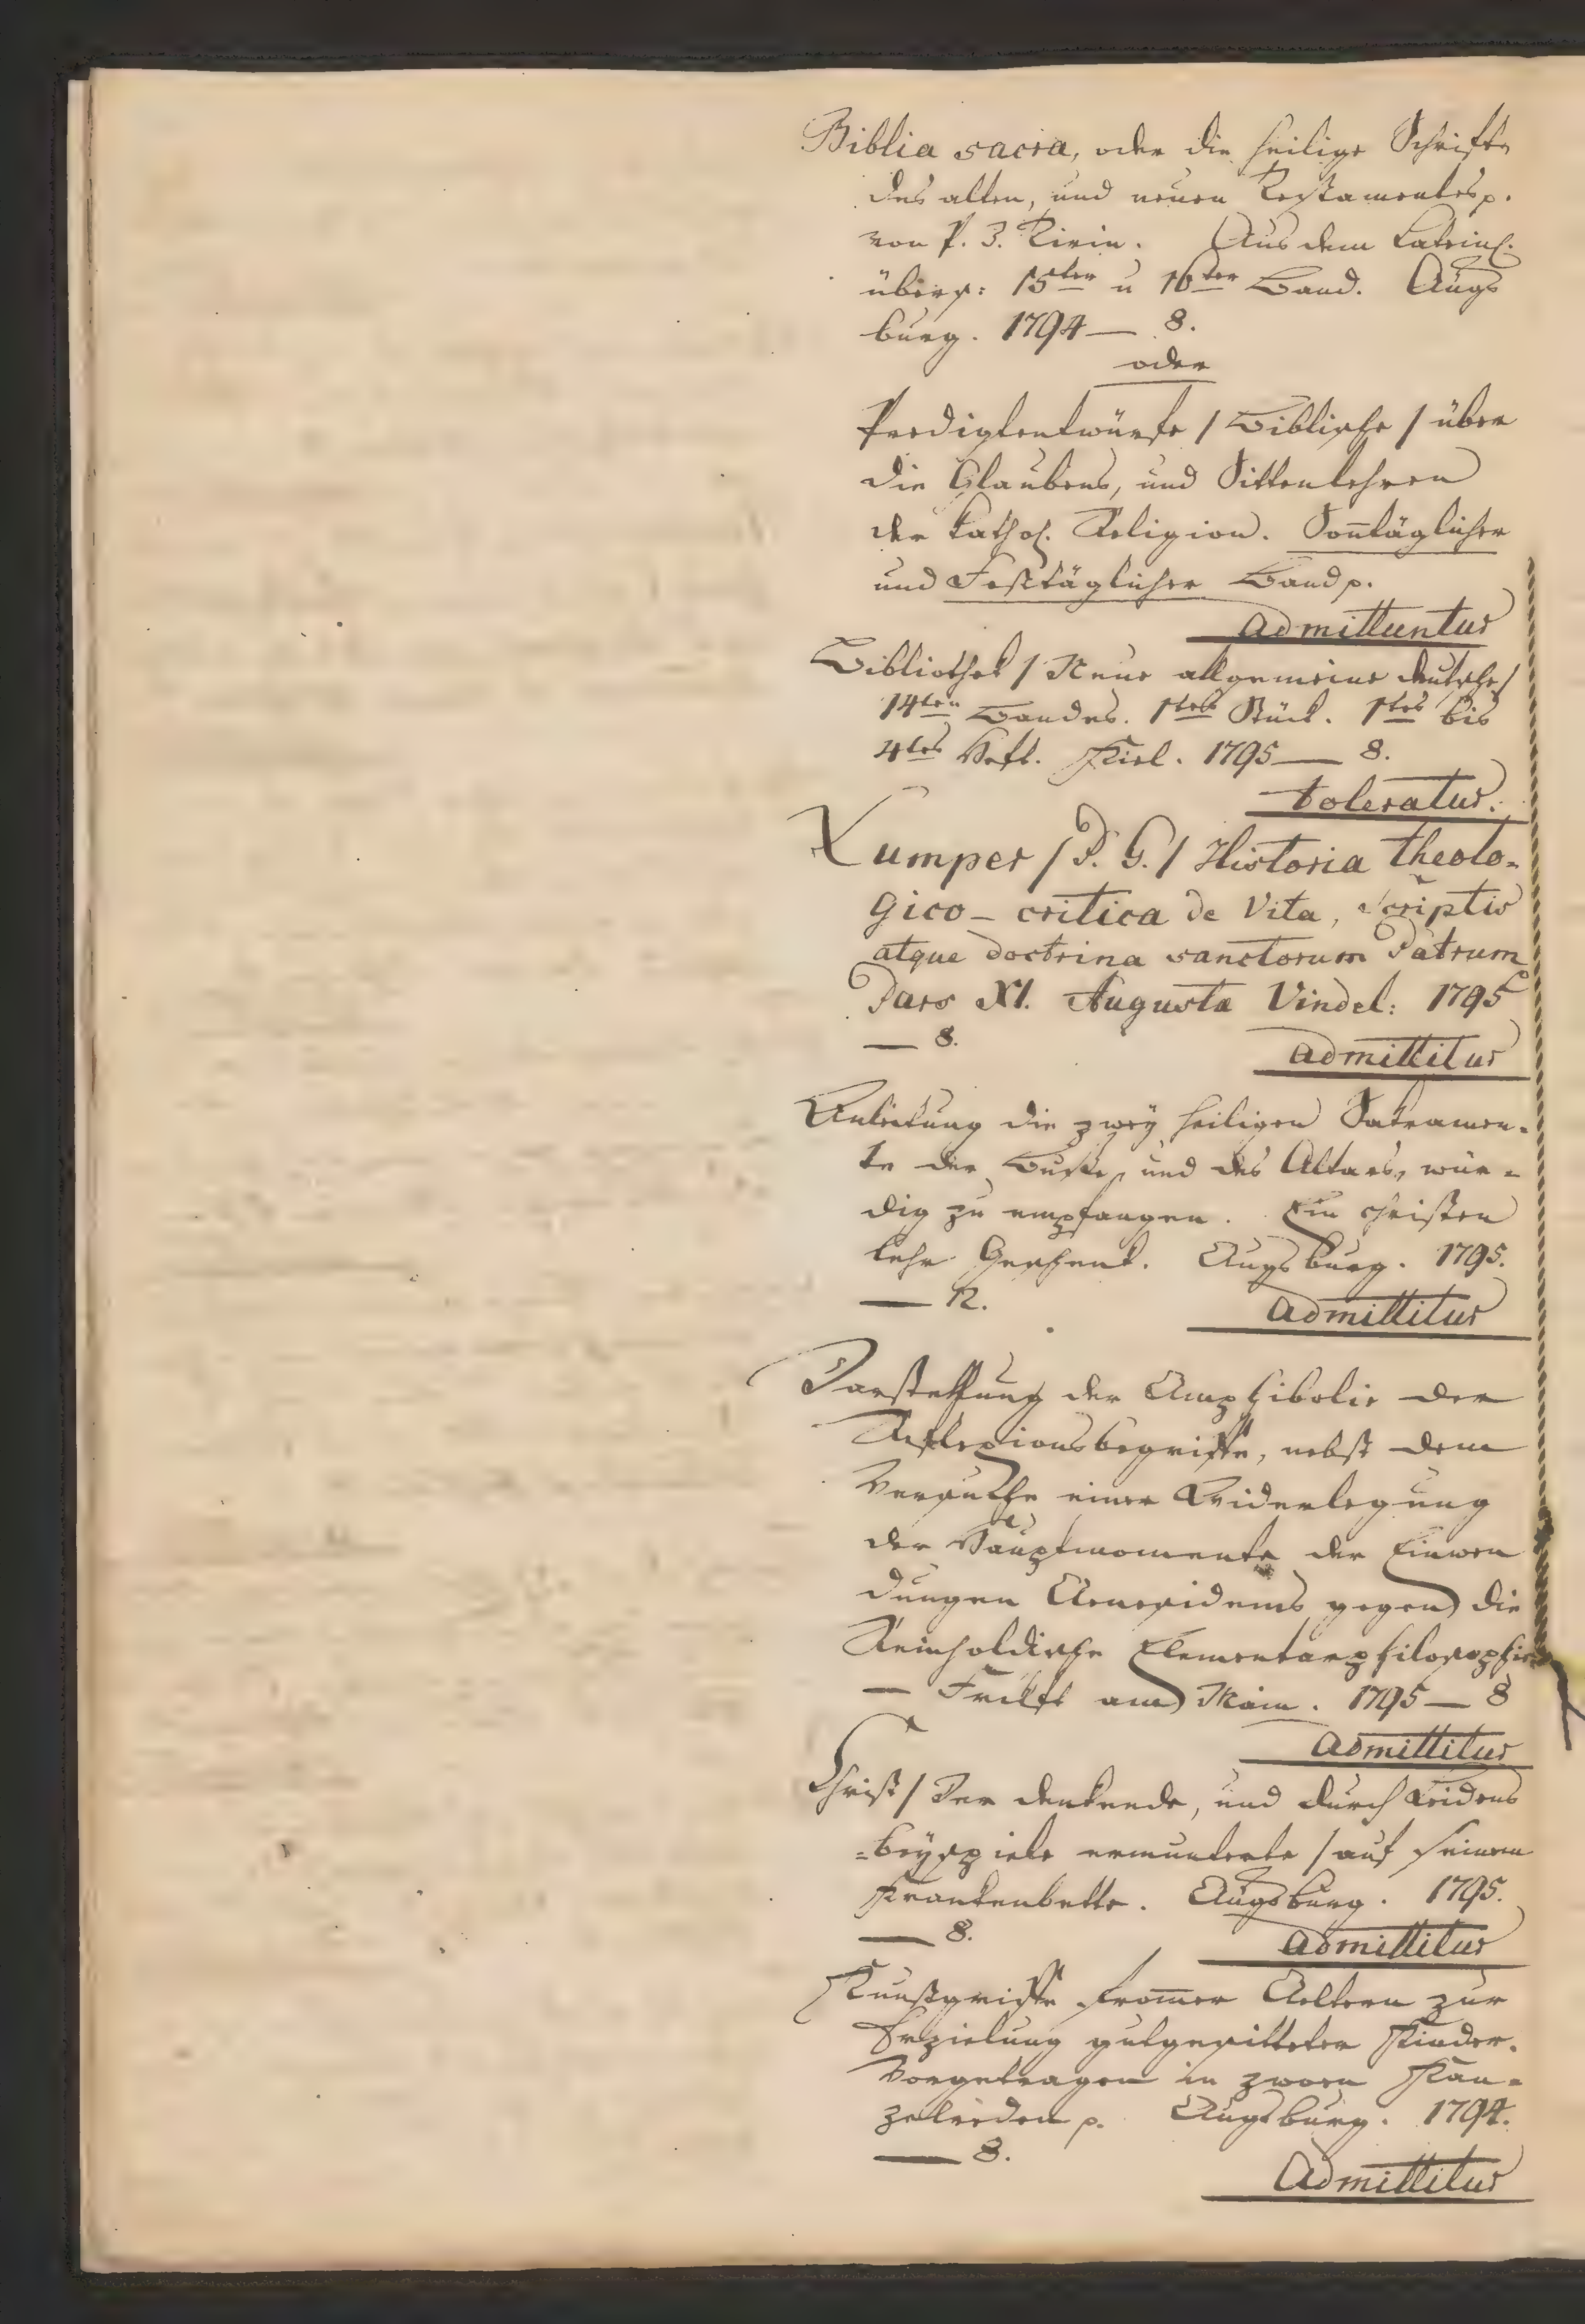 Biblia sacra, oder die heilige Schrift
des alten, und neuen Testamentes p.
von P. J. Tirin. Aus dem Latein.
übers: 15ter u 16ter Band. Augs
burg. 1794 — 8.
oder
Predigtentwürfe / Biblische / über
die Glaubens, und Sittenlehren
der kathol. Religion. Soñtäglicher
und Festtäglicher Band p.
admittuntur
Bibliothek / Neue allgemeine deutsche /
14ten Bandes. 1tes Stück. 1tes bis
4tes Heft. Kiel. 1795 — 8.
toleratur.
Lumper / P. G. / Historia theolo-
gico - critica de Vita, Scriptis
atque doctrina sanctorum Patrum
Pars XI. Augusta Vindel: 1795
— 8.
admittitur
Anleitung die zwey heiligen Sakramen-
te der Buße, und des Altars, wür-
dig zu empfangen. Ein christen
lehr Geschenk. Augsburg. 1795.
— 12.
admittitur
Darstellung der Amphibolie der
Reflexionsbegriffe, nebst dem
Versuche einer Widerlegung
der Hauptmomente der Einwen
dungen Aenesidems gegen die
Reinholdische Elementarphilosophie
— Frkft am Main. 1795 — 8
admittitur
Christ / Der denkende, und durch Leidens
=beyspiele ermunterte / auf seinem
Krankenbette. Augsburg. 1795.
— 8.
admittitur
Kunstgriffe from̄er Aeltern zur
Erzielung gutgesitteter Kinder.
Vorgetragen in zween Kan=
zelreden p. Augsburg. 1794.
— 8.
Admittitur